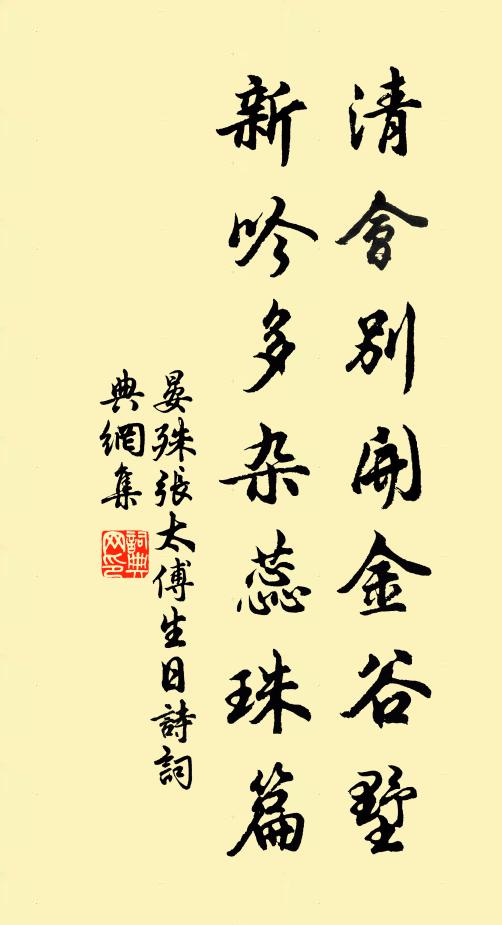 清會別開金谷墅
新吟多杂蕊珠篇
晏殊張太傅生日詩詞
典網集
詞典
网印